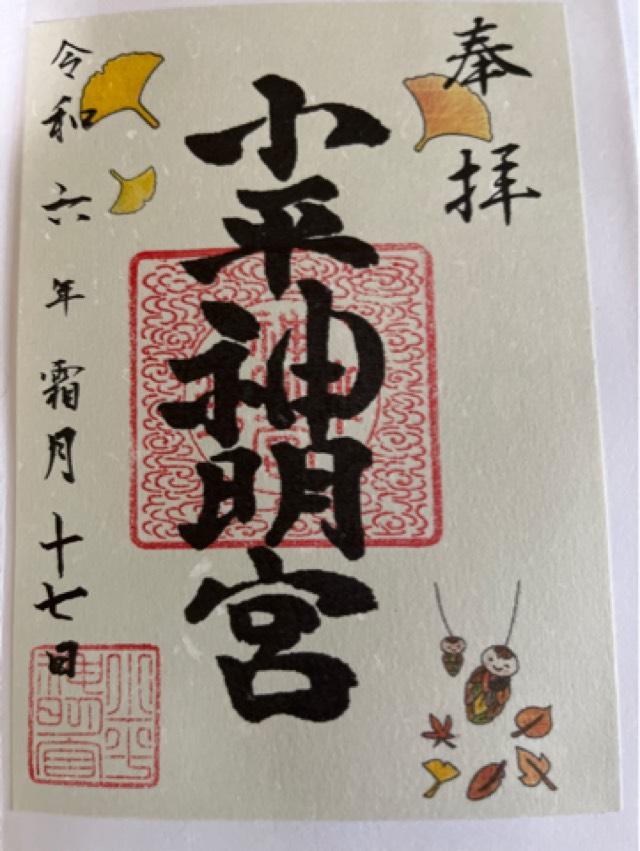 奉拝
小平神明宮
令和六年霜月十七日
小平神明宮